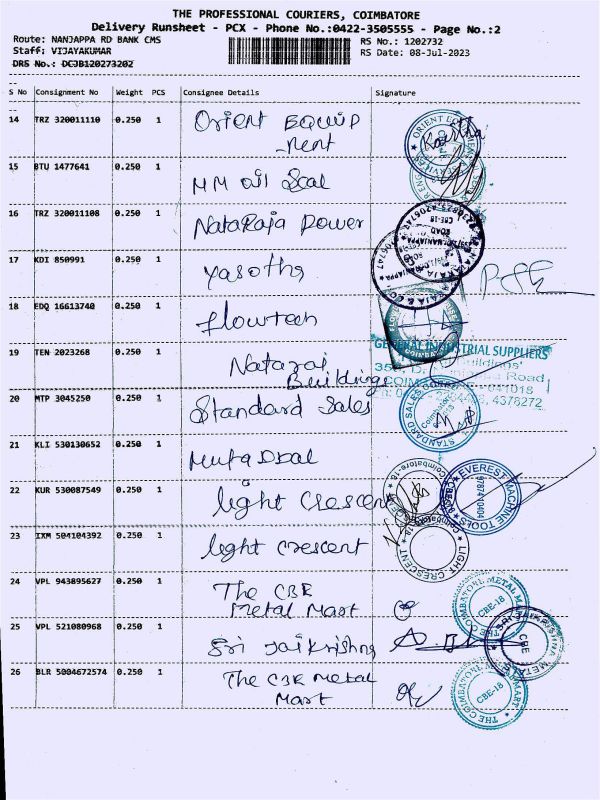 THE PROFESSIONAL COURIERS, COIMBATORE
Delivery Runsheet - PCX - Phone No.:0422-3505555 - Page No.:2
Route: NANJAPPA RD BANK CMS
RS No.: 1202732
Staff: VIJAYAKUMAR
RS Date: 08-Jul-2023
DRS No.: DCJB120273202
S No Consignment No Weight PCS Consignee Details Signature
14 TRZ 320011110 0.250 1 Orient Equip
-ment
15 BTU 1477641 0.250 1 MM Oil Seal
16 TRZ 320011108 0.250 1 Nataraja Power
17 KDI 850991 0.250 1 Yasotha
18 EDQ 16613740 0.250 1 flowtech
19 TEN 2023268 0.250 1 Nataraj
Buildings
GENERAL INDUSTRIAL SUPPLIERS
Buildings'
Road
641018
4378272
20 MTP 3045250 0.250 1 Standard Sales
STANDARD SALES
21 KLI 530130652 0.250 1 Mufaddal
22 KUR 530087549 0.250 1 light Crescent
Coimbatore-18
EVEREST MACHINE TOOLS
9787410404
23 IXM 504104392 0.250 1 light crescent
LIGHT CRESCENT
24 VPL 943895627 0.250 1 The CBE
Metal Mart
CBE-18
25 VPL 521080968 0.250 1 Sri Jaikrishna
CBE
METALS
26 BLR 5004672574 0.250 1 The CBE Metal
Mart
THE COIMBATORE METAL MART
CBE-18